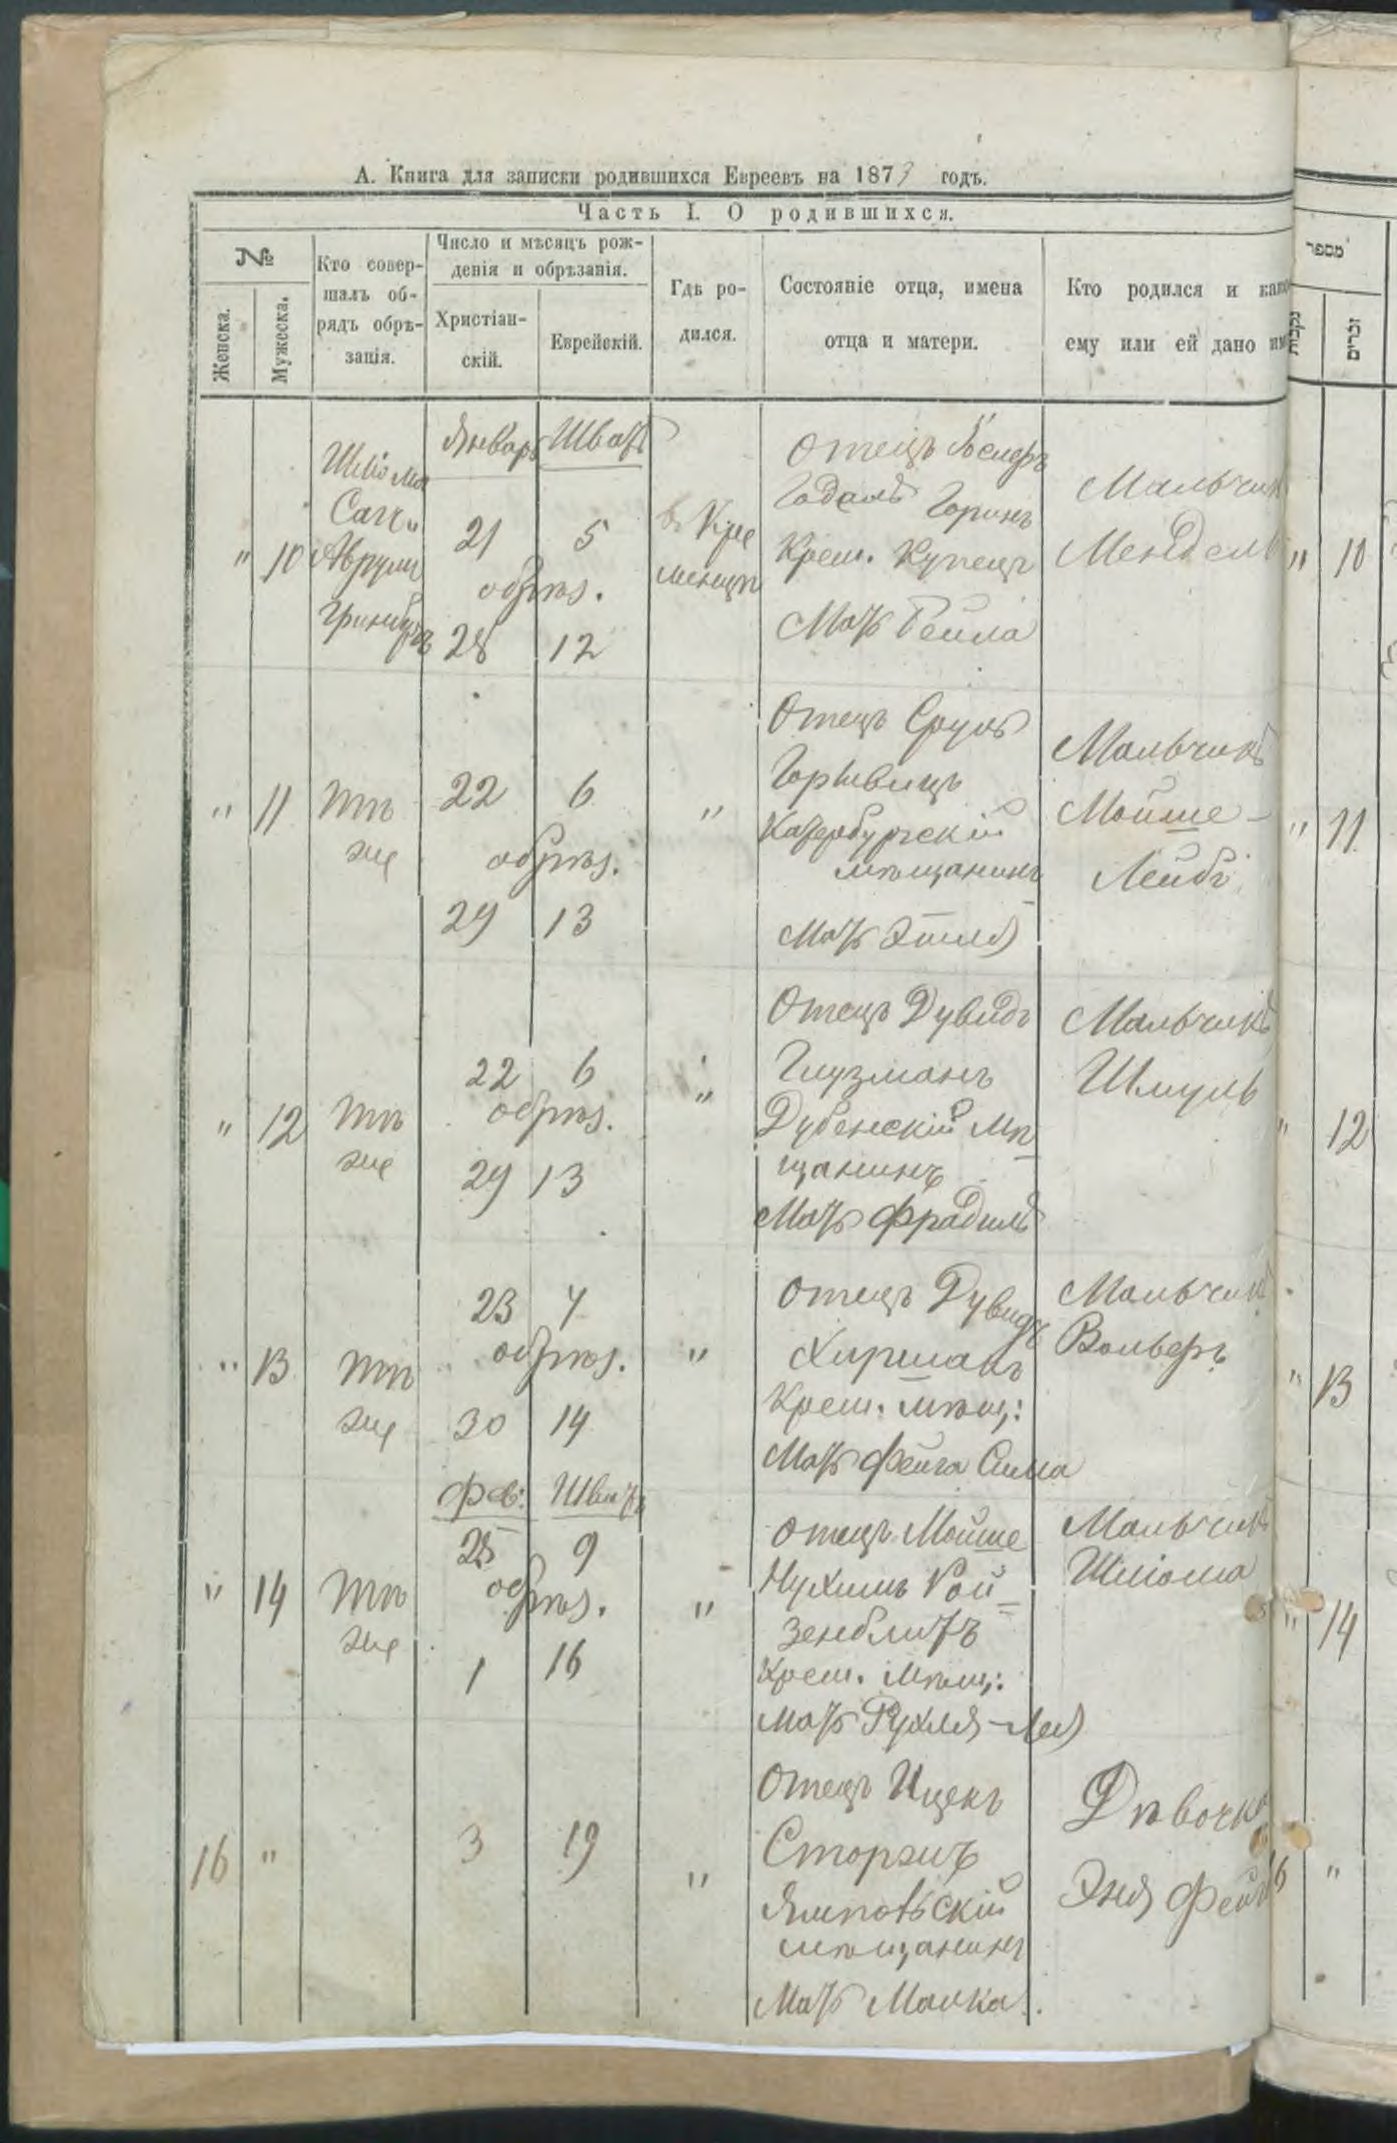 А. Книга для записки родившихся Евреевъ на 1873 годъ.
Часть I. О родившихся.
№
Женска.
Мужеска.
Кто совер-
шалъ об-
рядъ обрѣ-
занія.
Число и мѣсяцъ рож-
денія и обрѣзанія.
Христіан-
скій.
Еврейскій.
Гдѣ ро-
дился.
Состояніе отца, имена
отца и матери.
Кто родился и како
ему или ей дано им
מספר
נקבות
זכרים
" 10
Шліома
Авруми
Январь Шватъ
21 5
обрѣз.
28 12
в. Кре
менцѣ
Отецъ
Горинъ
Крем. Купецъ
Мать Бейла
Мальчик
Мендель
" 10
" 11
тотъ
же
22 6
обрѣз.
29 13
"
Отецъ Сруль
Горвицъ
Катербургскій
мѣщанинъ
Мать Этля
Мальчикъ
Мойше-
Лейбъ
" 11
" 12
тотъ
же
22 6
обрѣз.
29 13
"
Отецъ Дувидъ
Глузманъ
Дубенскій мѣ
щанинъ
Мать Фрадиль
Мальчикъ
Шмуль
" 12
" 13
тотъ
же
23 7
обрѣз.
30 14
"
Отецъ Дувидъ
Хирманъ
Крем. мѣщ:
Мать Фейга Сима
Мальчик
Вольфъ
" 13
" 14
тотъ
же
Фев: Шватъ
25 9
обрѣз.
1 16
"
Отецъ Мойше
Нухимъ Рой
зенблитъ
Крем. мѣщ:
Мать Рухля-Лея
Мальчикъ
Шліома
" 14
16 "
3 19
"
Отецъ Ицекъ
Сторожъ
Ямповьскій
мѣщанинъ
Мать Малка.
Дѣвочка
Эня Фейг
6 "